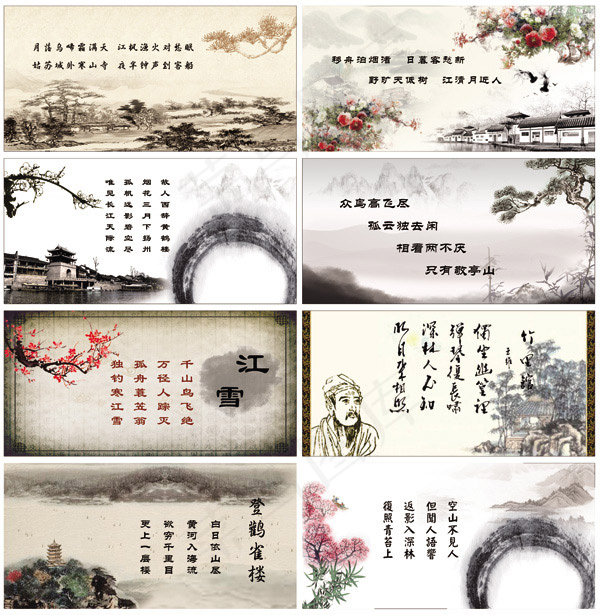 月落乌啼霜满天 江枫渔火对愁眠
姑苏城外寒山寺 夜半钟声到客船
移舟泊烟渚 日暮客愁新
野旷天低树 江清月近人
故人西辞黄鹤楼
烟花三月下扬州
孤帆远影碧空尽
唯见长江天际流
众鸟高飞尽
孤云独去闲
相看两不厌
只有敬亭山
江雪
千山鸟飞绝
万径人踪灭
孤舟蓑笠翁
独钓寒江雪
竹里館
王維
獨坐幽篁裡
彈琴復長嘯
深林人不知
明月來相照
登鹳雀楼
白日依山尽
黄河入海流
欲穷千里目
更上一层楼
空山不見人
但聞人語響
返影入深林
復照青苔上